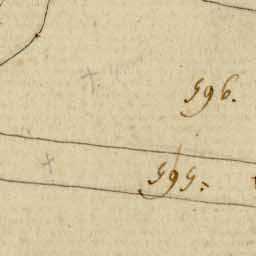 596.
595: